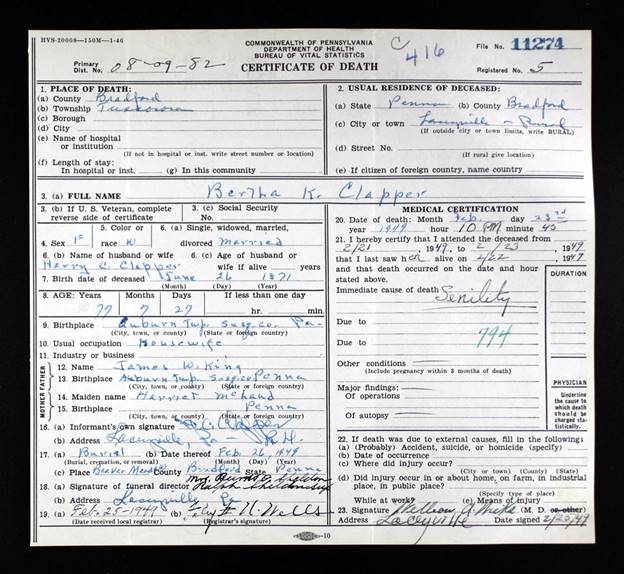 HVS-20008—150M—1-46
COMMONWEALTH OF PENNSYLVANIA
DEPARTMENT OF HEALTH
BUREAU OF VITAL STATISTICS
CERTIFICATE OF DEATH
C 416
File No. 11274
Registered No. 5
Primary Dist. No. 08-09-82
1. PLACE OF DEATH:
(a) County Bradford
(b) Township Tuscarora
(c) Borough
(d) City
(e) Name of hospital or institution
(If not in hospital or inst. write street number or location)
(f) Length of stay:
In hospital or inst. (g) In this community
2. USUAL RESIDENCE OF DECEASED:
(a) State Penna (b) County Bradford
(c) City or town Laceyville - Rural
(If outside city or town limits, write RURAL)
(d) Street No.
(If rural give location)
(e) If citizen of foreign country, name country
3. (a) FULL NAME Bertha K. Clapper
3. (b) If U. S. Veteran, complete reverse side of certificate
3. (c) Social Security No.
4. Sex F
5. Color or race W
6. (a) Single, widowed, married, divorced Married
6. (b) Name of husband or wife
Harry C. Clapper
6. (c) Age of husband or wife if alive years
7. Birth date of deceased June 26 1871
(Month) (Day) (Year)
8. AGE: Years Months Days If less than one day
77 7 27 hr. min.
9. Birthplace Auburn Twp. Susq. co. Pa-
(City, town, or county) (State or foreign country)
10. Usual occupation Housewife
11. Industry or business
MOTHER FATHER
12. Name James W. King
13. Birthplace Auburn Twp. Susq co Penna
(City, town, or county) (State or foreign country)
14. Maiden name Harriet
15. Birthplace Penna
(City, town, or county) (State or foreign country)
16. (a) Informant's own signature H.C. Clapper
(b) Address Laceyville, Pa - R.D.
17. (a) Burial (b) Date thereof Feb 26 1949
(Burial, cremation, or removal) (Month) (Day) (Year)
(c) Place Beaver Meadow Bradford Penna
County State
18. (a) Signature of funeral director
(b) Address Laceyville Pa
19. (a) Feb. 25-1949 (b) N. Wells
(Date received local registrar) (Registrar's signature)
MEDICAL CERTIFICATION
20. Date of death: Month Feb. day 23rd
year 1949 hour 10 PM minute 45
21. I hereby certify that I attended the deceased from
2/21 1949 to 2/23, 1949
that I last saw her alive on 2/22, 1949
and that death occurred on the date and hour stated above.
DURATION
Immediate cause of death
Senility
Due to
794
Due to
Other conditions
(Include pregnancy within 3 months of death)
Major findings:
Of operations
Of autopsy
PHYSICIAN
Underline the cause to which death should be charged statistically.
22. If death was due to external causes, fill in the following:
(a) (Probably) Accident, suicide, or homicide (specify)
(b) Date of occurrence
(c) Where did injury occur?
(City or town) (County) (State)
(d) Did injury occur in or about home, on farm, in industrial place, in public place?
(Specify type of place)
While at work? (e) Means of injury
23. Signature (M. D. or other)
Address Laceyville Date signed
-10